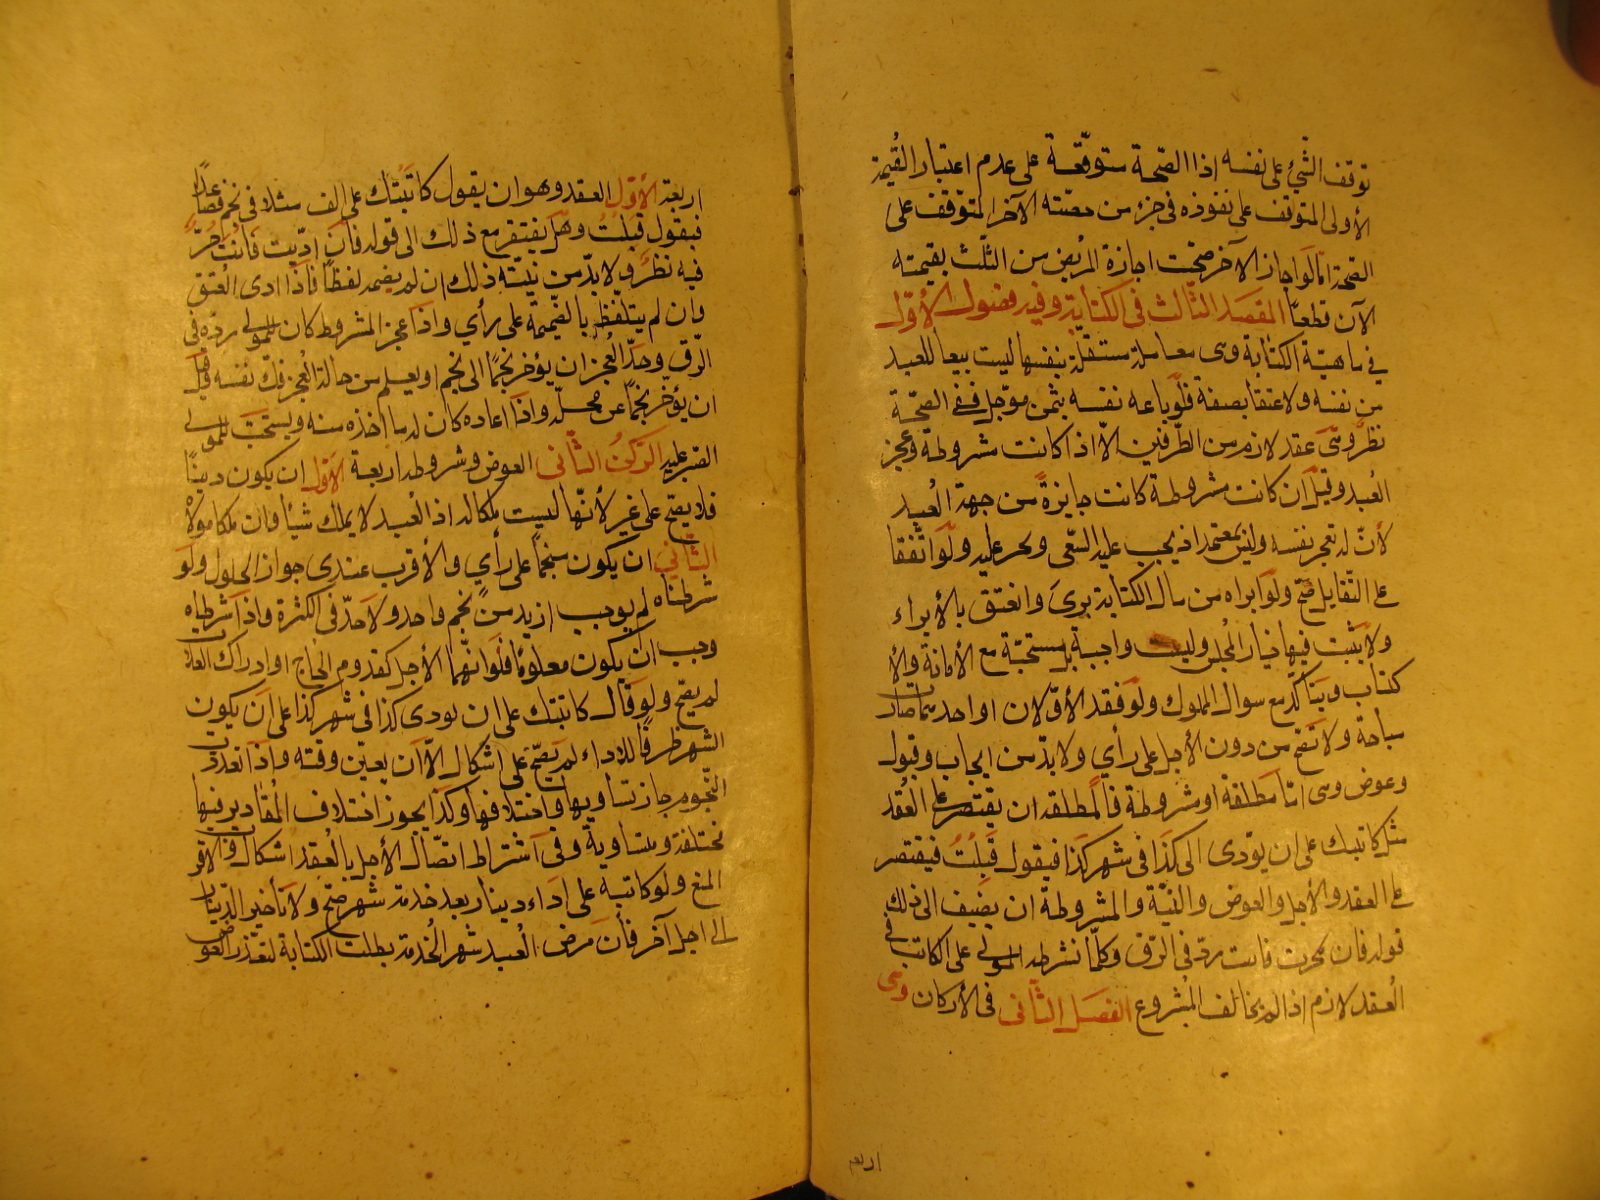 توقف الشئ على نفسه اذا الصحة متوقفة على عدم اعتبار القيمة
الأولى المتوقف على نفوذه في جزء من حصته الآخر المتوقف على
الصحة اما لو اجاز الآخر صحت اجازة المريض من الثلث بقيمته
الآن قطعا المقصد الثالث في الكتابة وفيه فصول الأول
في ماهية الكتابة وهى معاملة مستقلة بنفسها ليست بيعا للعبد
من نفسه ولا عتقا بصفة فلو باعه نفسه بثمن موجل ففى الصحة
نظر وهى عقد لازم من الطرفين الا اذا كانت مشروطة وعجز
العبد وقيل ان كانت مشروطة كانت جايزة من جهة العبد
لأن له تعجيز نفسه وليس بمعتمد اذ يجب عليه السعى ويجبر عليه ولو اتفقا
على التقايل صح ولو ابراه من مال الكتابة برئ وانعتق بالأبراء
ولا يثبت فيها خيار المجلس وليست واجبة بل مستحبة مع الأمانة والأ
كتساب ويتأكد مع سوال المملوك ولو فقد الأولان او احدهما صارت
مباحة ولا تصح من دون الأجل على رأي ولا بد من ايجاب وقبول
وعوض وهى اما مطلقة او مشروطة فالمطلقة ان يقتصر على العقد
مثل كاتبتك على ان يؤدى الى كذا في شهر كذا فيقول قبلت فيقتصر
على العقد والأجل والعوض والنية والمشروطة ان يضيف الى ذلك
قوله فان عجزت فانت رد في الرق وكلما نشرطه المولى على المكاتب في
العقد لازم اذا لم يخالف المشروع الفصل الثانى في الأركان وهى
اربعة
اربعة الأول العقد وهو ان يقول كاتبتك على الف مثلا في نجم فصاعدا
فيقول قبلت وهل يفتقر مع ذلك الى قوله فان اديت فانت حر
فيه نظر ولا بد من نيته ذلك ان لم يضمه لفظا فاذا ادى العتق
وان لم يتلفظ بالضميمة على رأي واذا عجز المشروط كان للمولى رده في
الرق وحد العجز ان يؤخر نجما الى نجم او يعلم من حاله العجز فك نفسه وقيل
ان يؤخر نجما عن محله واذا اعاده كان له ما اخذه منه ويستحب للمولى
الصبر عليه الركن الثانى العوض وشروطه اربعة الأول ان يكون دينا
فلا يصح على غير لأنها ليست ملكا له اذ العبد لا يملك شيأ وان ملكه مولاه
الثاني ان يكون منجما على رأي والأقرب عندى جواز الحلول ولو
شرطناه لم يوجب ازيد من نجم واحد ولا حد في الكثرة واذا شرطناه
وجب ان يكون معلوما فلو ابهما الأجل كقدوم الحاج او ادراك الغلات
لم يصح ولو قال كاتبتك على ان تودى كذا في شهر كذا على ان يكون
الشهر ظرفا للاداء لم يصح على اشكال الا ان يعين وقته واذا تعددت
النجوم جاز تساويها واختلافها وكذا يجوز اختلاف المقادير فيها
مختلفة ومتساوية وفي اشتراط اتصال الأجل بالعقد اشكال والاقرب
المنع ولو كاتبه على اداء دينار بعد خدمة شهر صح ولا تأخير الدينار
الى اجل آخر فأن مرض العبد شهر الخدمة بطلت الكتابة لتعذر العوض